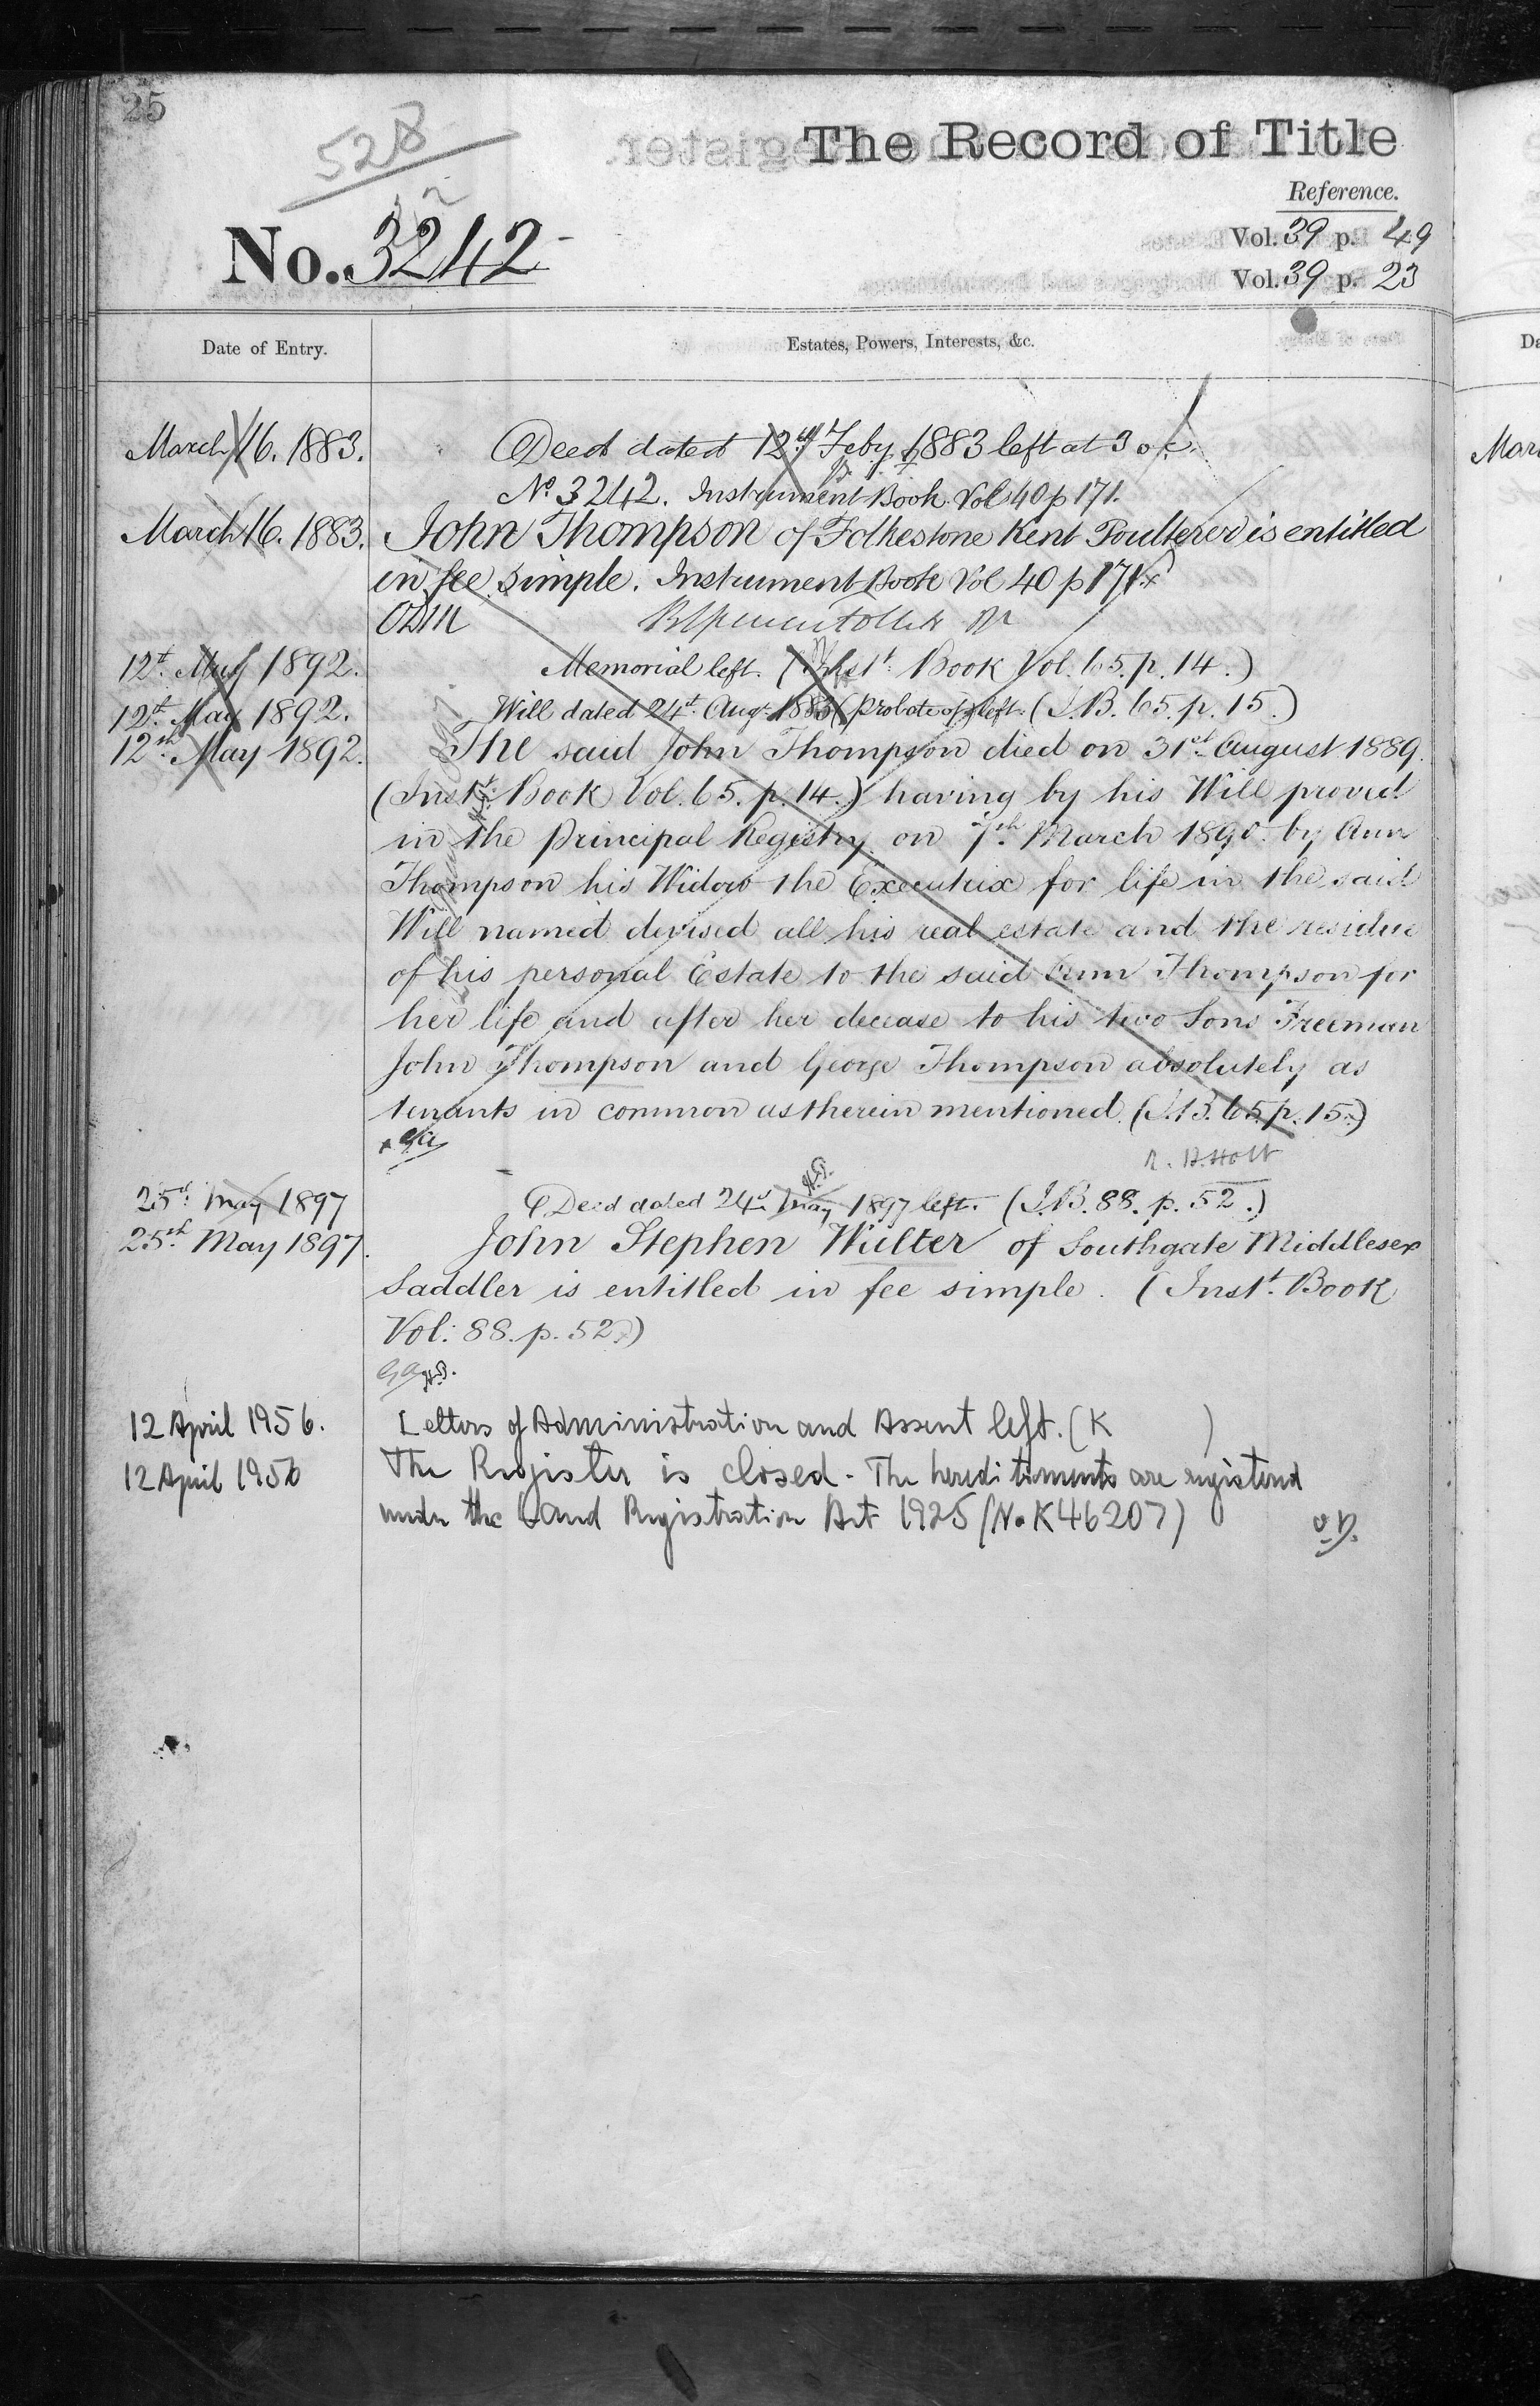 25
528
The Record of Title
Reference.
No. 3242
Vol. 39 p. 49
Vol. 39 p. 23
Date of Entry.
Estates, Powers, Interests, &c.
March 16. 1883. Deed dated 12th Feby. 1883 left at 3 o.c.
No. 3242. Instrument Book Vol 40 p 171.
March 16. 1883. John Thompson of Folkestone Kent Poulterer is entitled
in fee simple. Instrument Book Vol 40 p 171
12th May 1892. Memorial left. (Inst. Book Vol. 65. p. 14.)
12th May 1892. Will dated 24th Augt. 1883 (probate of) left. (I.B. 65. p. 15.)
12th May 1892. The said John Thompson died on 31st August 1889.
(Inst. Book Vol. 65. p. 14.) having by his Will proved
in the Principal Registry on 7th March 1890 by Ann
Thompson his Widow the Executrix for life in the said
Will named devised all his real estate and the residue
of his personal Estate to the said Ann Thompson for
her life and after her decease to his two Sons Freeman
John Thompson and George Thompson absolutely as
tenants in common as therein mentioned (I.B. 65 p. 15.)
R. H. Holt
25th May 1897 Deed dated 24th May 1897 left. (I.B. 88. p. 52.)
25th May 1897. John Stephen Wulter of Southgate Middlesex
Saddler is entitled in fee simple. (Inst. Book
Vol: 88. p. 52.)
12 April 1956. Letters of Administration and Assent left. (K )
12 April 1956 The Register is closed - The hereditaments are registered
under the Land Registration Act 1925 (No K46207)
Mar